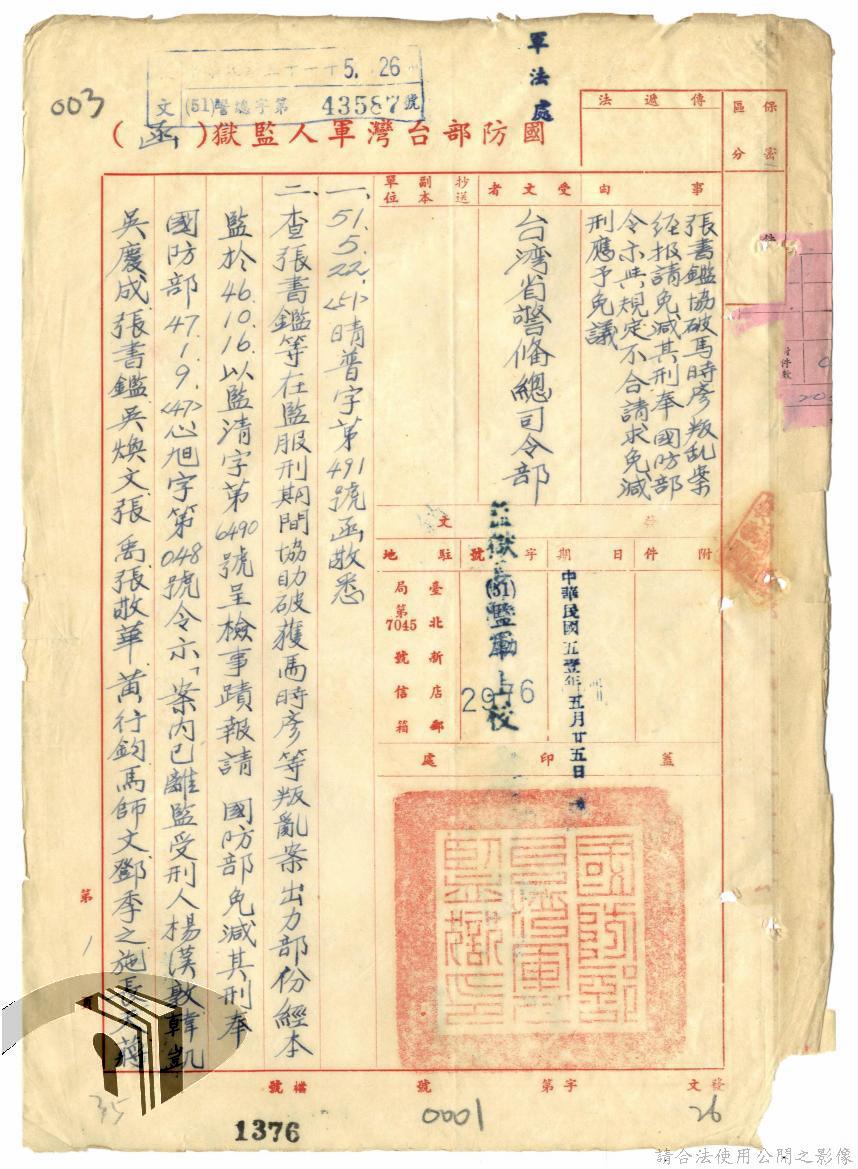 軍法處
5. 26
文 (51)警總字第 43587號
003
國防部台灣軍人監獄(函)
傳遞法
保密區分
事由
張書鑑協破馬時彥叛乱案
經报請免減其刑奉 國防部
令示與規定不合請求免減
刑應予免議
受文者
台湾省警備總司令部
抄送副本單位
發文
附件
日期
中華民國五壹年五月廿五日
字號
(51)監
2976
駐地
臺北新店郵局第7045號信箱
蓋印處
國防部台灣軍人監獄印
一、51.5.22.<51>晴普字第491號函敬悉
二、查張書鑑等在監服刑期間協助破獲馬時彥等叛亂案出力部份經本
監於46.10.16.以監清字第6490號呈檢事蹟報請 國防部免減其刑奉
國防部47.1.9.<47>心旭字第048號令示「案內已離監受刑人楊漢敦韓凱
吳慶成張書鑑吳煥文張禹張敬華黃行鈞馬師文鄧季之施長天蔣
第1頁
發文
字第
號
檔號
26
0001
35
1376
請合法使用公開之影像